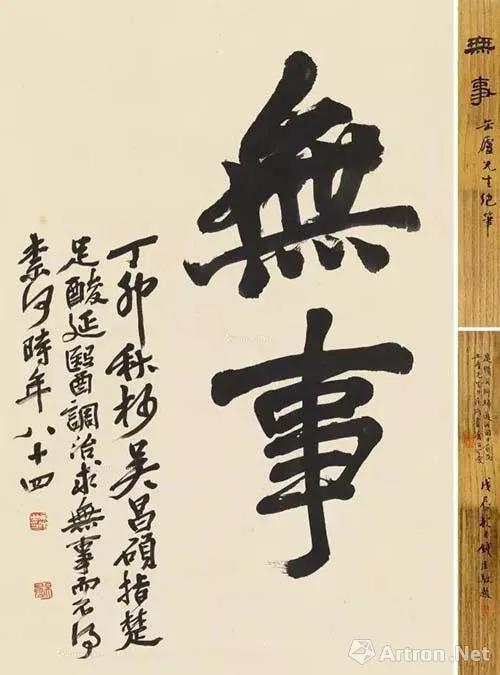 無事
丁卯秋杪吳昌碩指楚
足酸延醫調治求無事而不得
柰何時年八十四
無事
缶廬先生絕筆
戊辰
Artron.Net